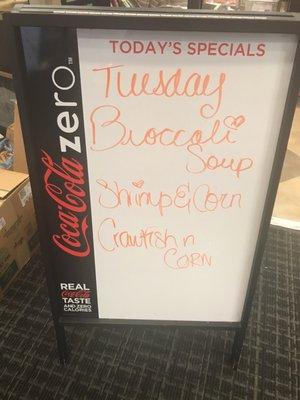 TODAY'S SPECIALS
Tuesday
Broccoli
Soup
Shrimp & Corn
Crawfish n
CORN
Coca-Cola zero™
REAL
Coca-Cola
TASTE
AND ZERO
CALORIES